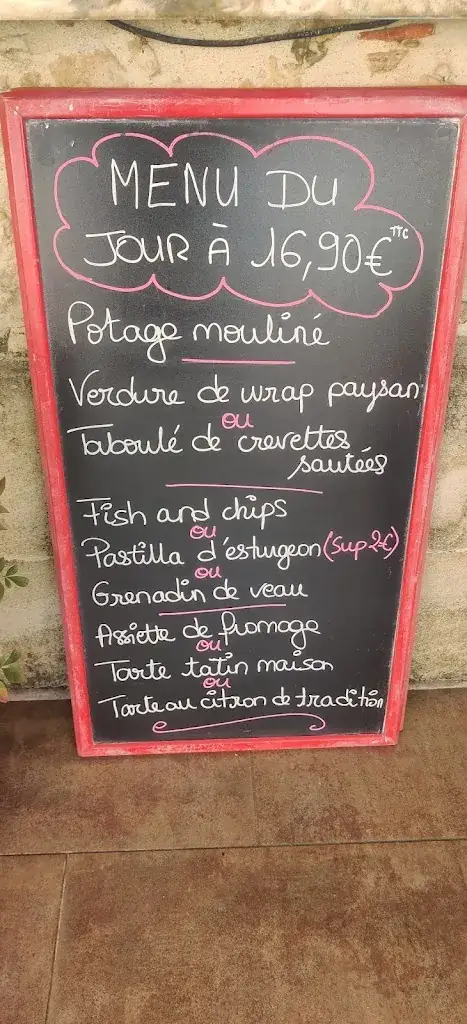 MENU DU
JOUR À 16,90€ TTC
Potage mouliné
Verdure de wrap paysan
ou
Taboulé de crevettes
sautées
Fish and chips
ou
Pastilla d'esturgeon (sup 2€)
ou
Grenadin de veau
Assiette de fromage
ou
Tarte tatin maison
ou
Tarte au citron de tradition